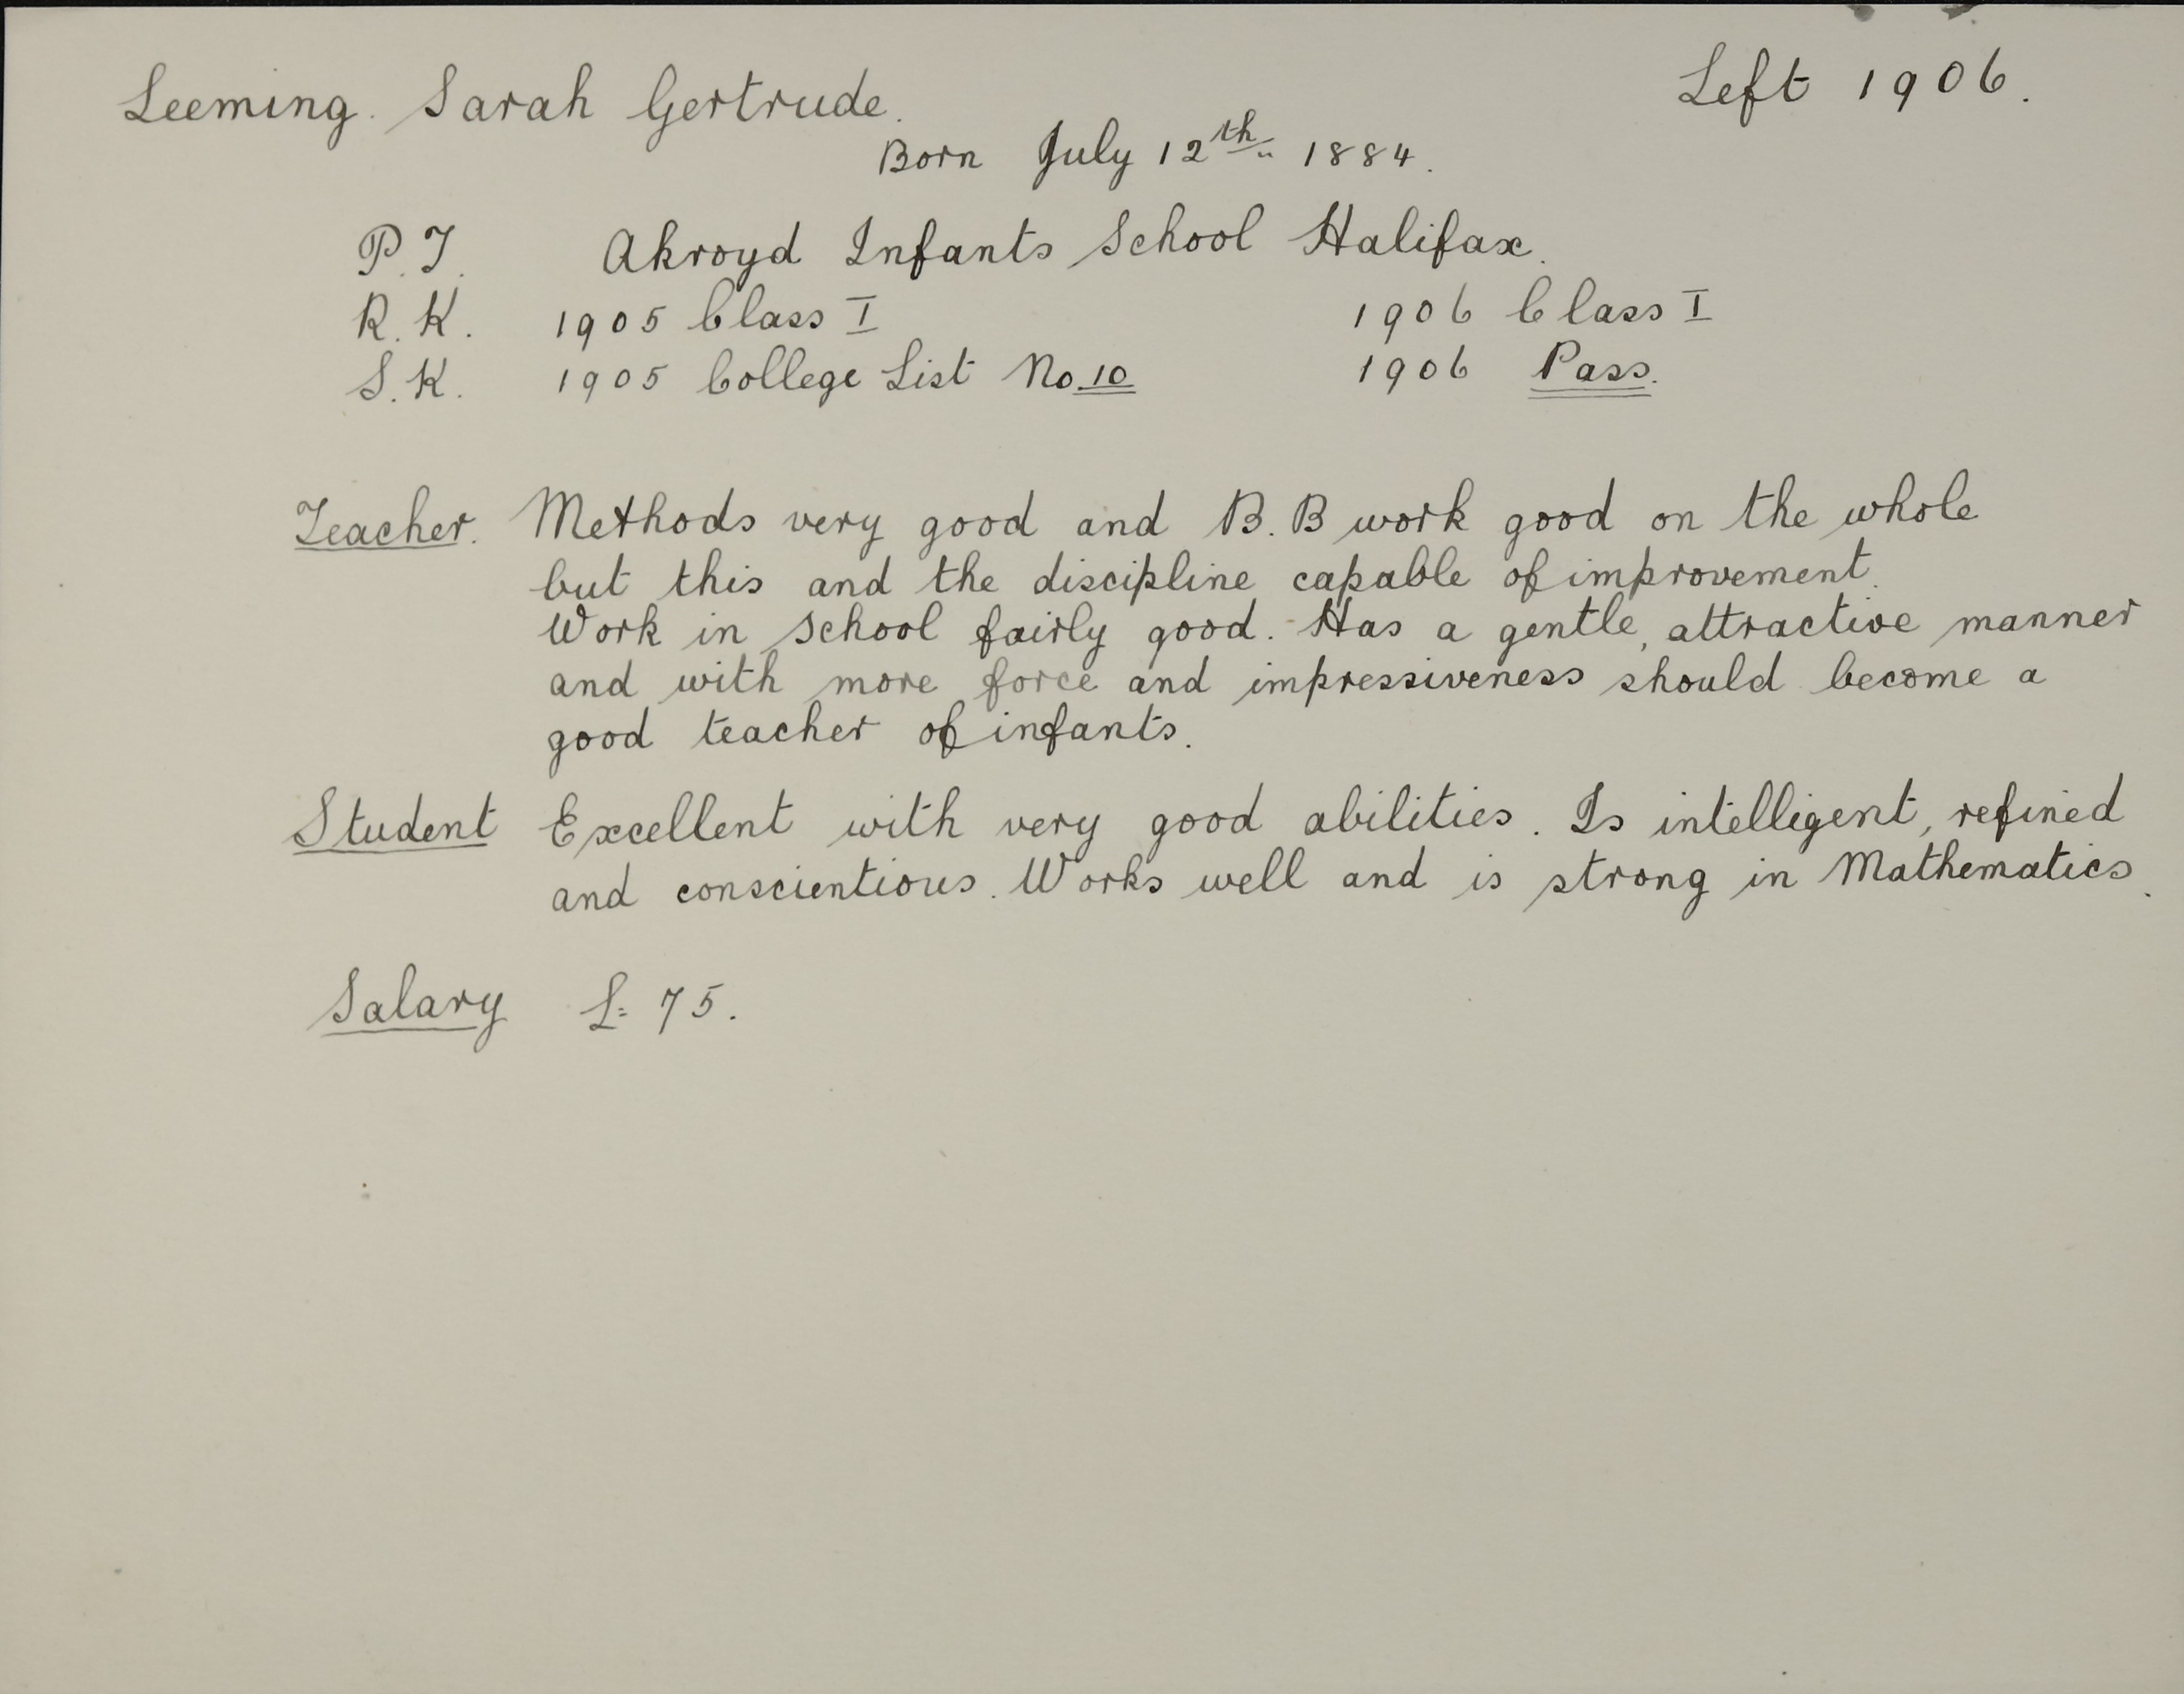 Leeming. Sarah Gertrude. Left 1906.
Born July 12th 1884.
P.T. Akroyd Infants School Halifax.
R.K. 1905 Class I 1906 Class I
S.K. 1905 College List No. 10 1906 Pass.
Teacher. Methods very good and B.B work good on the whole
but this and the discipline capable of improvement.
Work in school fairly good. Has a gentle, attractive manner
and with more force and impressiveness should become a
good teacher of infants.
Student Excellent with very good abilities. Is intelligent, refined
and conscientious. Works well and is strong in Mathematics.
Salary £ 75.